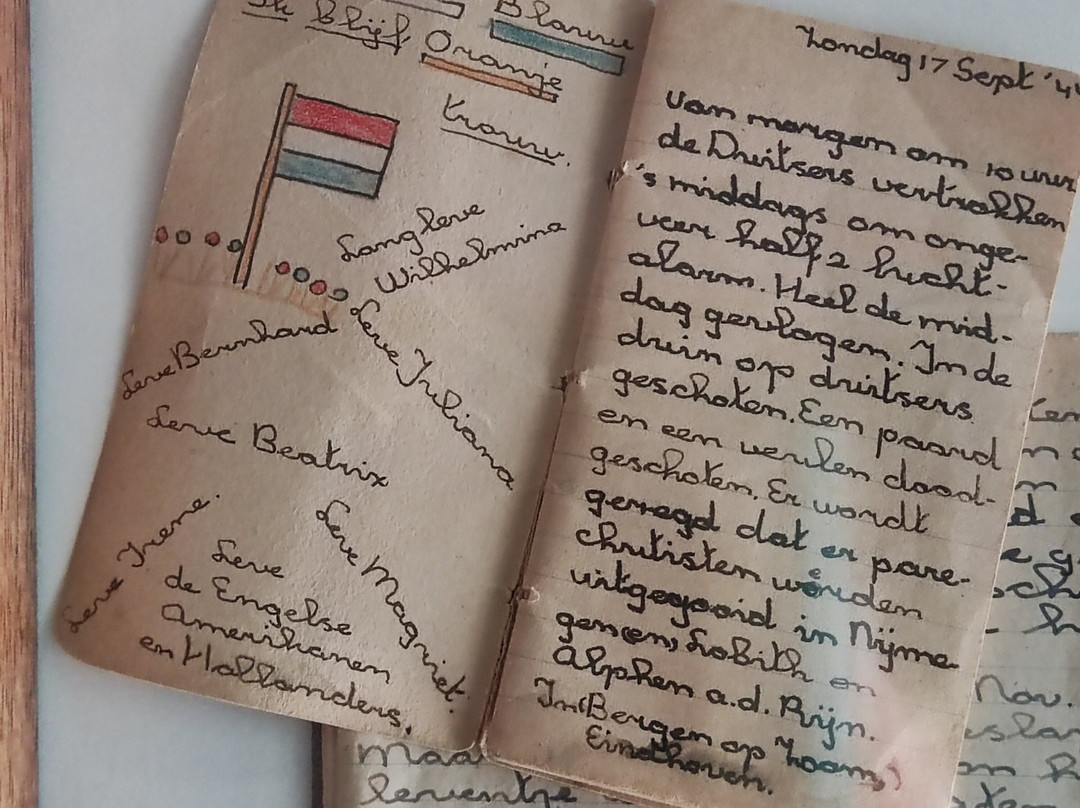 Ik Blijf
Blauw
Oranje
trouw.
Lang leve
Wilhelmina
Leve Bernhard
Leve Juliana
Leve Beatrix
Leve Irene.
Leve Magriet.
Leve
de Engelse
Amerikanen
en Hollanders.
Zondag 17 Sept '44
Van morgen om 10 uur
de Duitsers vertrokken
's middags om onge-
veer half 2 lucht-
alarm. Heel de mid-
dag gevlogen. In de
druin op duitsers
geschoten. Een paard
en een veulen dood-
geschoten. Er wordt
gezegd dat er para-
chutisten worden
uitgegooid in Nijme-
gen, Lobith en
Alphen a.d. Rijn.
In (Bergen op Zoom,)
Eindhoven.
Maa
leventje
Nov.